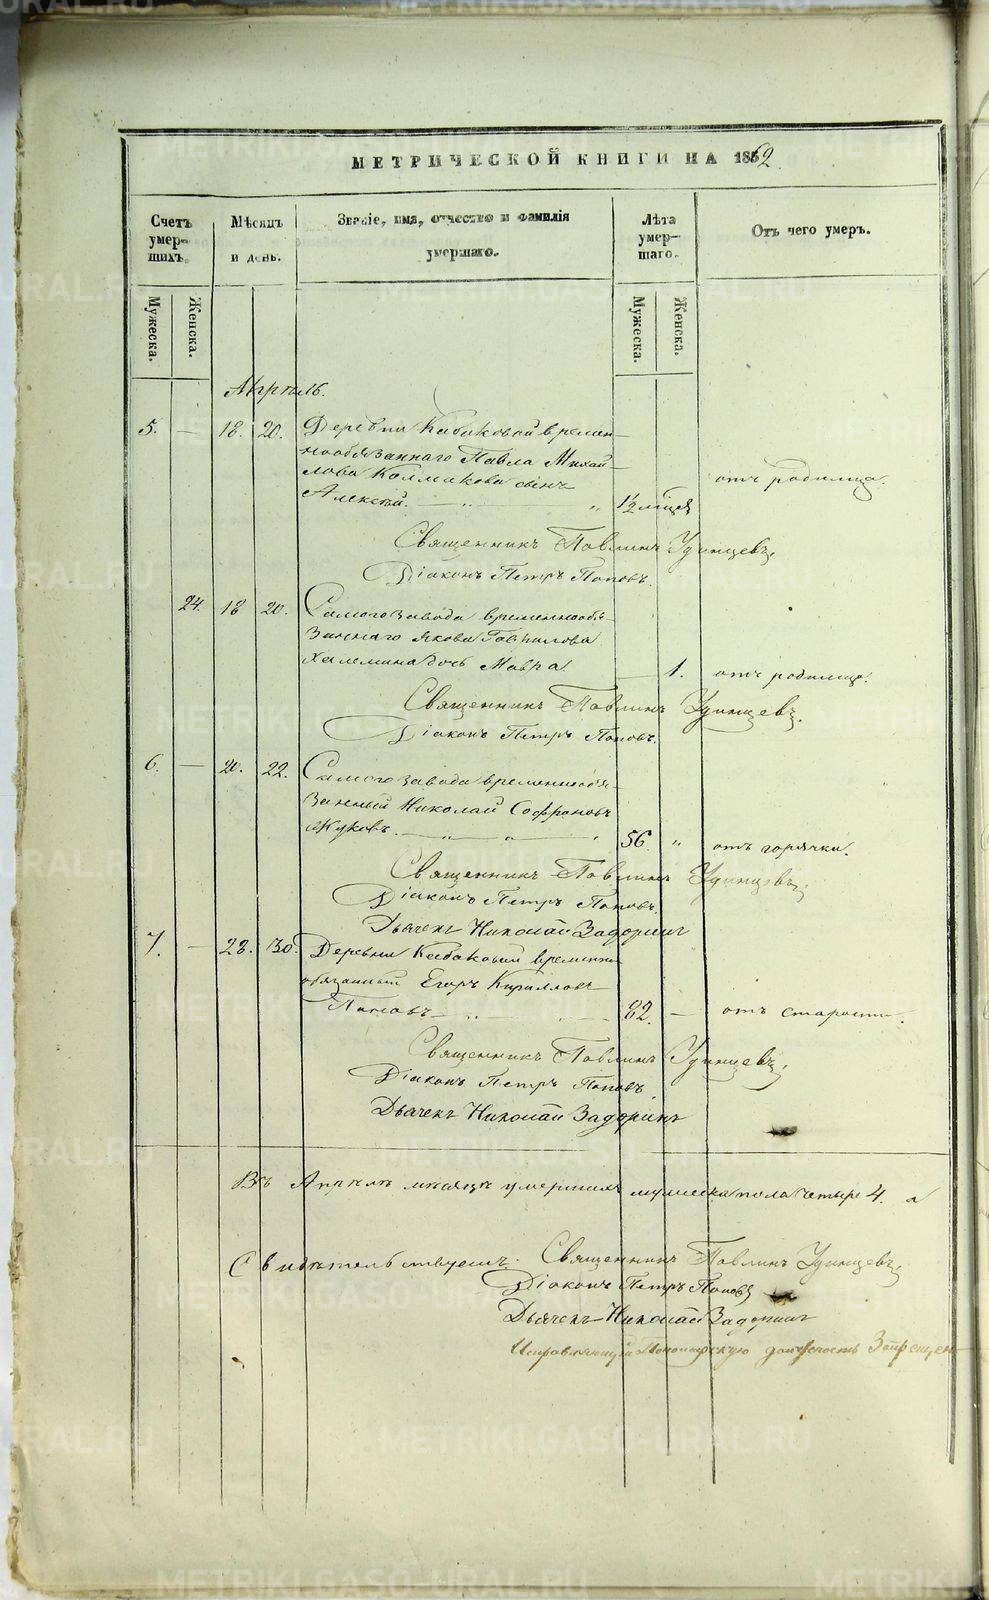 МЕТРИЧЕСКОЙ КНИГИ НА 1862
Счетъ умер-шихъ.
Мѣсяцъ и день.
Званіе, имя, отчество и фамилія умершаго.
Лѣта умер-шаго.
Отъ чего умеръ.
Мужеска.
Женска.
Мужеска.
Женска.
Апрѣль.
5. — 18. 20. Деревни Кабаковой времен-
нообязаннаго Павла Михай-
лова Колмакова сынъ
Алексѣй. — „ — „ 1/2 мѣсяца отъ родимца.
Священникъ Павлинъ Удинцевъ,
Діаконъ Петръ Поповъ.
24. 18 20. Самого завода временнообя-
заннаго Якова Гаврилова
дочь Мавра — 1. отъ родимца.
Священникъ Павлинъ Удинцевъ,
Діаконъ Петръ Поповъ.
6. — 20. 22. Самого завода временнообя-
занный Николай Софроновъ
Жуковъ. — „ „ „ 56. „ отъ горячки.
Священникъ Павлинъ Удинцевъ,
Діаконъ Петръ Поповъ.
Дьячекъ Николай Задоринъ
7. — 28. 30. Деревни Кабаковой временно
обязанный Егоръ Кирилловъ
Поповъ — „ — 82. — отъ старости.
Священникъ Павлинъ Удинцевъ,
Діаконъ Петръ Поповъ.
Дьячекъ Николай Задоринъ
Въ Апрѣлѣ мѣсяцѣ умершихъ мужеска пола четыре 4. а
Свидѣтельствуемъ: Священникъ Павлинъ Удинцевъ,
Діаконъ Петръ Поповъ
Дьячекъ Николай Задоринъ
Исправляющій Пономарскую должность
METRIKI.GASO-URAL.RU